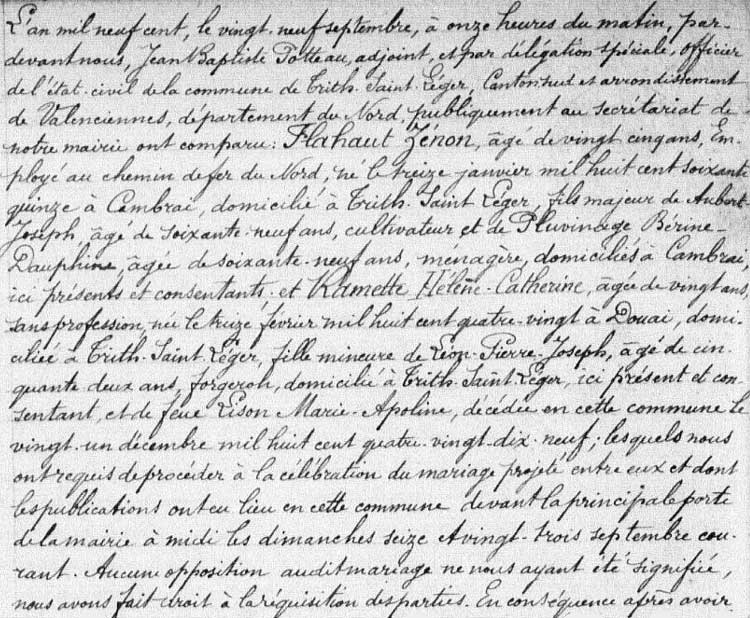 L'an mil neuf cent, le vingt-neuf septembre, à onze heures du matin, par-
devant nous, Jean Baptiste Potteau, adjoint, et par délégation spéciale, officier
de l'état-civil de la commune de Trith-Saint-Léger, Canton sud et arrondissement
de Valenciennes, département du Nord, publiquement au secrétariat de
notre mairie ont comparu: Flahaut Zénon, âgé de vingt cinq ans, Em-
ployé au chemin de fer du Nord, né le treize janvier mil huit cent soixante
quinze à Cambrai, domicilié à Trith-Saint Léger, fils majeur de Aubert
Joseph, âgé de soixante-neuf ans, cultivateur et de Pluvinage Bérine-
Dauphine, âgée de soixante-neuf ans, ménagère, domiciliés à Cambrai,
ici présents et consentants-et Ramette Hélène-Catherine, âgée de vingt ans,
sans profession, née le treize février mil huit cent quatre-vingt à Douai, domi-
ciliée à Trith-Saint-Léger, fille mineure de Léon-Pierre-Joseph, âgé de cin-
quante deux ans, forgeron, domicilié à Trith-Saint-Léger, ici présent et con-
sentant, et de feue Lison Marie-Apoline, décédée en cette commune le
vingt-un décembre mil huit cent quatre-vingt-dix-neuf; lesquels nous
ont requis de procéder à la célébration du mariage projeté entre eux et dont
les publications ont eu lieu en cette commune devant la principale porte
de la mairie à midi les dimanches seize et vingt-trois septembre cou-
rant. Aucune opposition audit mariage ne nous ayant été signifiée,
nous avons fait droit à la réquisition des parties. En conséquence après avoir